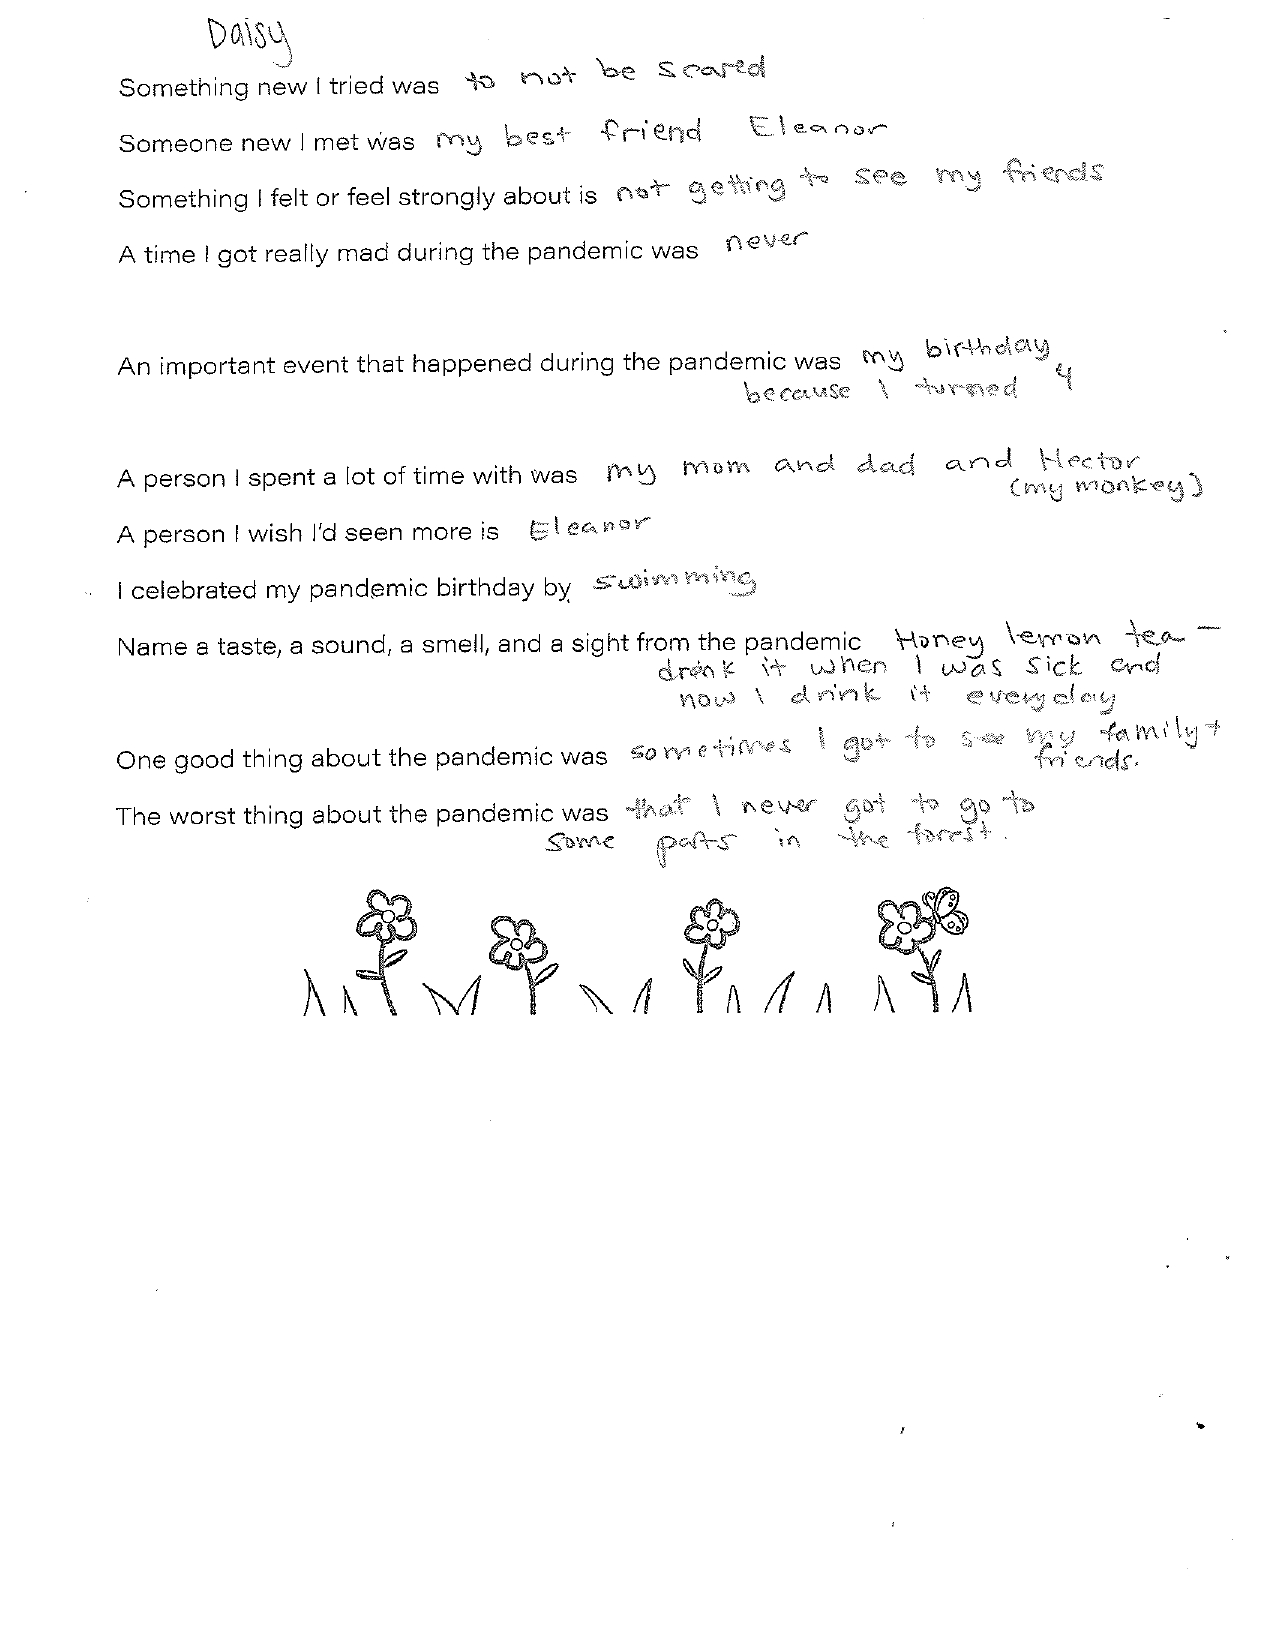 Daisy
Something new I tried was to not be scared
Someone new I met was my best friend Eleanor
Something I felt or feel strongly about is not getting to see my friends
A time I got really mad during the pandemic was never
An important event that happened during the pandemic was my birthday
because I turned 4
A person I spent a lot of time with was my mom and dad and Hector
(my monkey)
A person I wish I'd seen more is Eleanor
I celebrated my pandemic birthday by swimming
Name a taste, a sound, a smell, and a sight from the pandemic Honey lemon tea -
drink it when I was sick and
now I drink it everyday
One good thing about the pandemic was sometimes I got to see my family +
friends.
The worst thing about the pandemic was that I never got to go to
some parts in the forrst.